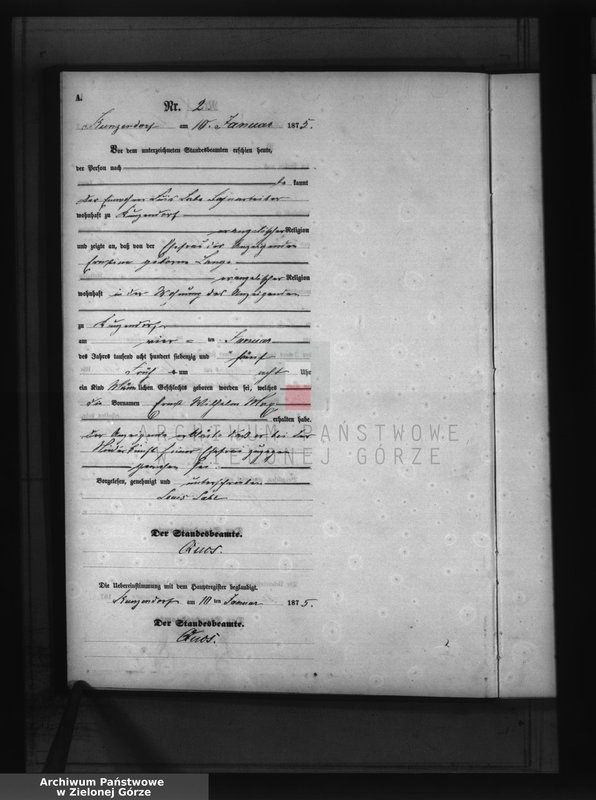 A.
Nr. 2
Kunzendorf am 10. Januar 1875.
Vor dem unterzeichneten Standesbeamten erschien heute,
der Person nach
be kannt
der Louis
wohnhaft zu Kunzendorf
evangelischer Religion
und zeigte an, daß von der Ehefrau des Anzeigenden
Ernstine geborne Lange
evangelischer Religion
wohnhaft in der Wohnung des Anzeigenden
zu Kunzendorf
am vier ten Januar
des Jahres tausend acht hundert siebenzig und fünf
Früh um acht Uhr
ein Kind Männlichen Geschlechts geboren worden sei, welches
die Vornamen Ernst Wilhelm Max
erhalten habe.
der Anzeigende erklärte daß er bei der
Niederkunft seiner Ehefrau zugegen
gewesen sei.
Vorgelesen, genehmigt und unterschrieben
Louis
Der Standesbeamte.
Quos.
Die Uebereinstimmung mit dem Hauptregister beglaubigt.
Kunzendorf am 10 ten Januar 1875.
Der Standesbeamte.
Quos.
ARCHIWUM PAŃSTWOWE
W ZIELONEJ GÓRZE
Archiwum Państwowe
w Zielonej Górze